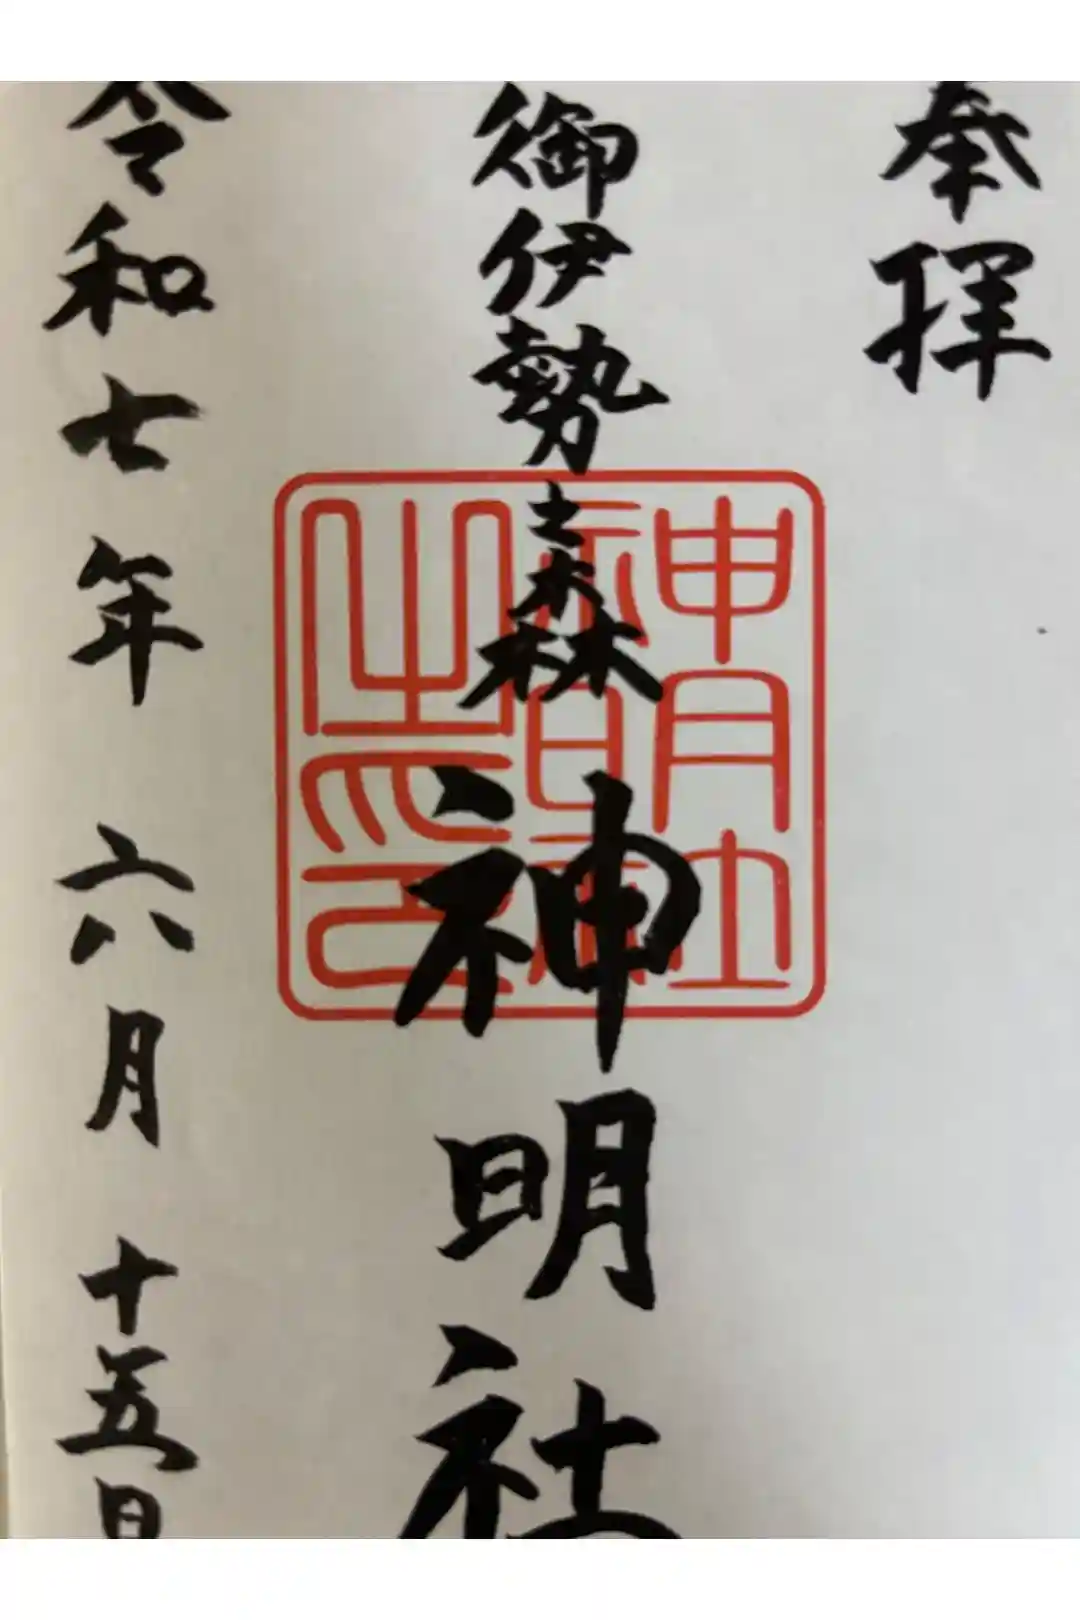 奉拝
御伊勢之森
神明社
令和七年 六月 十五日
神明社
之印